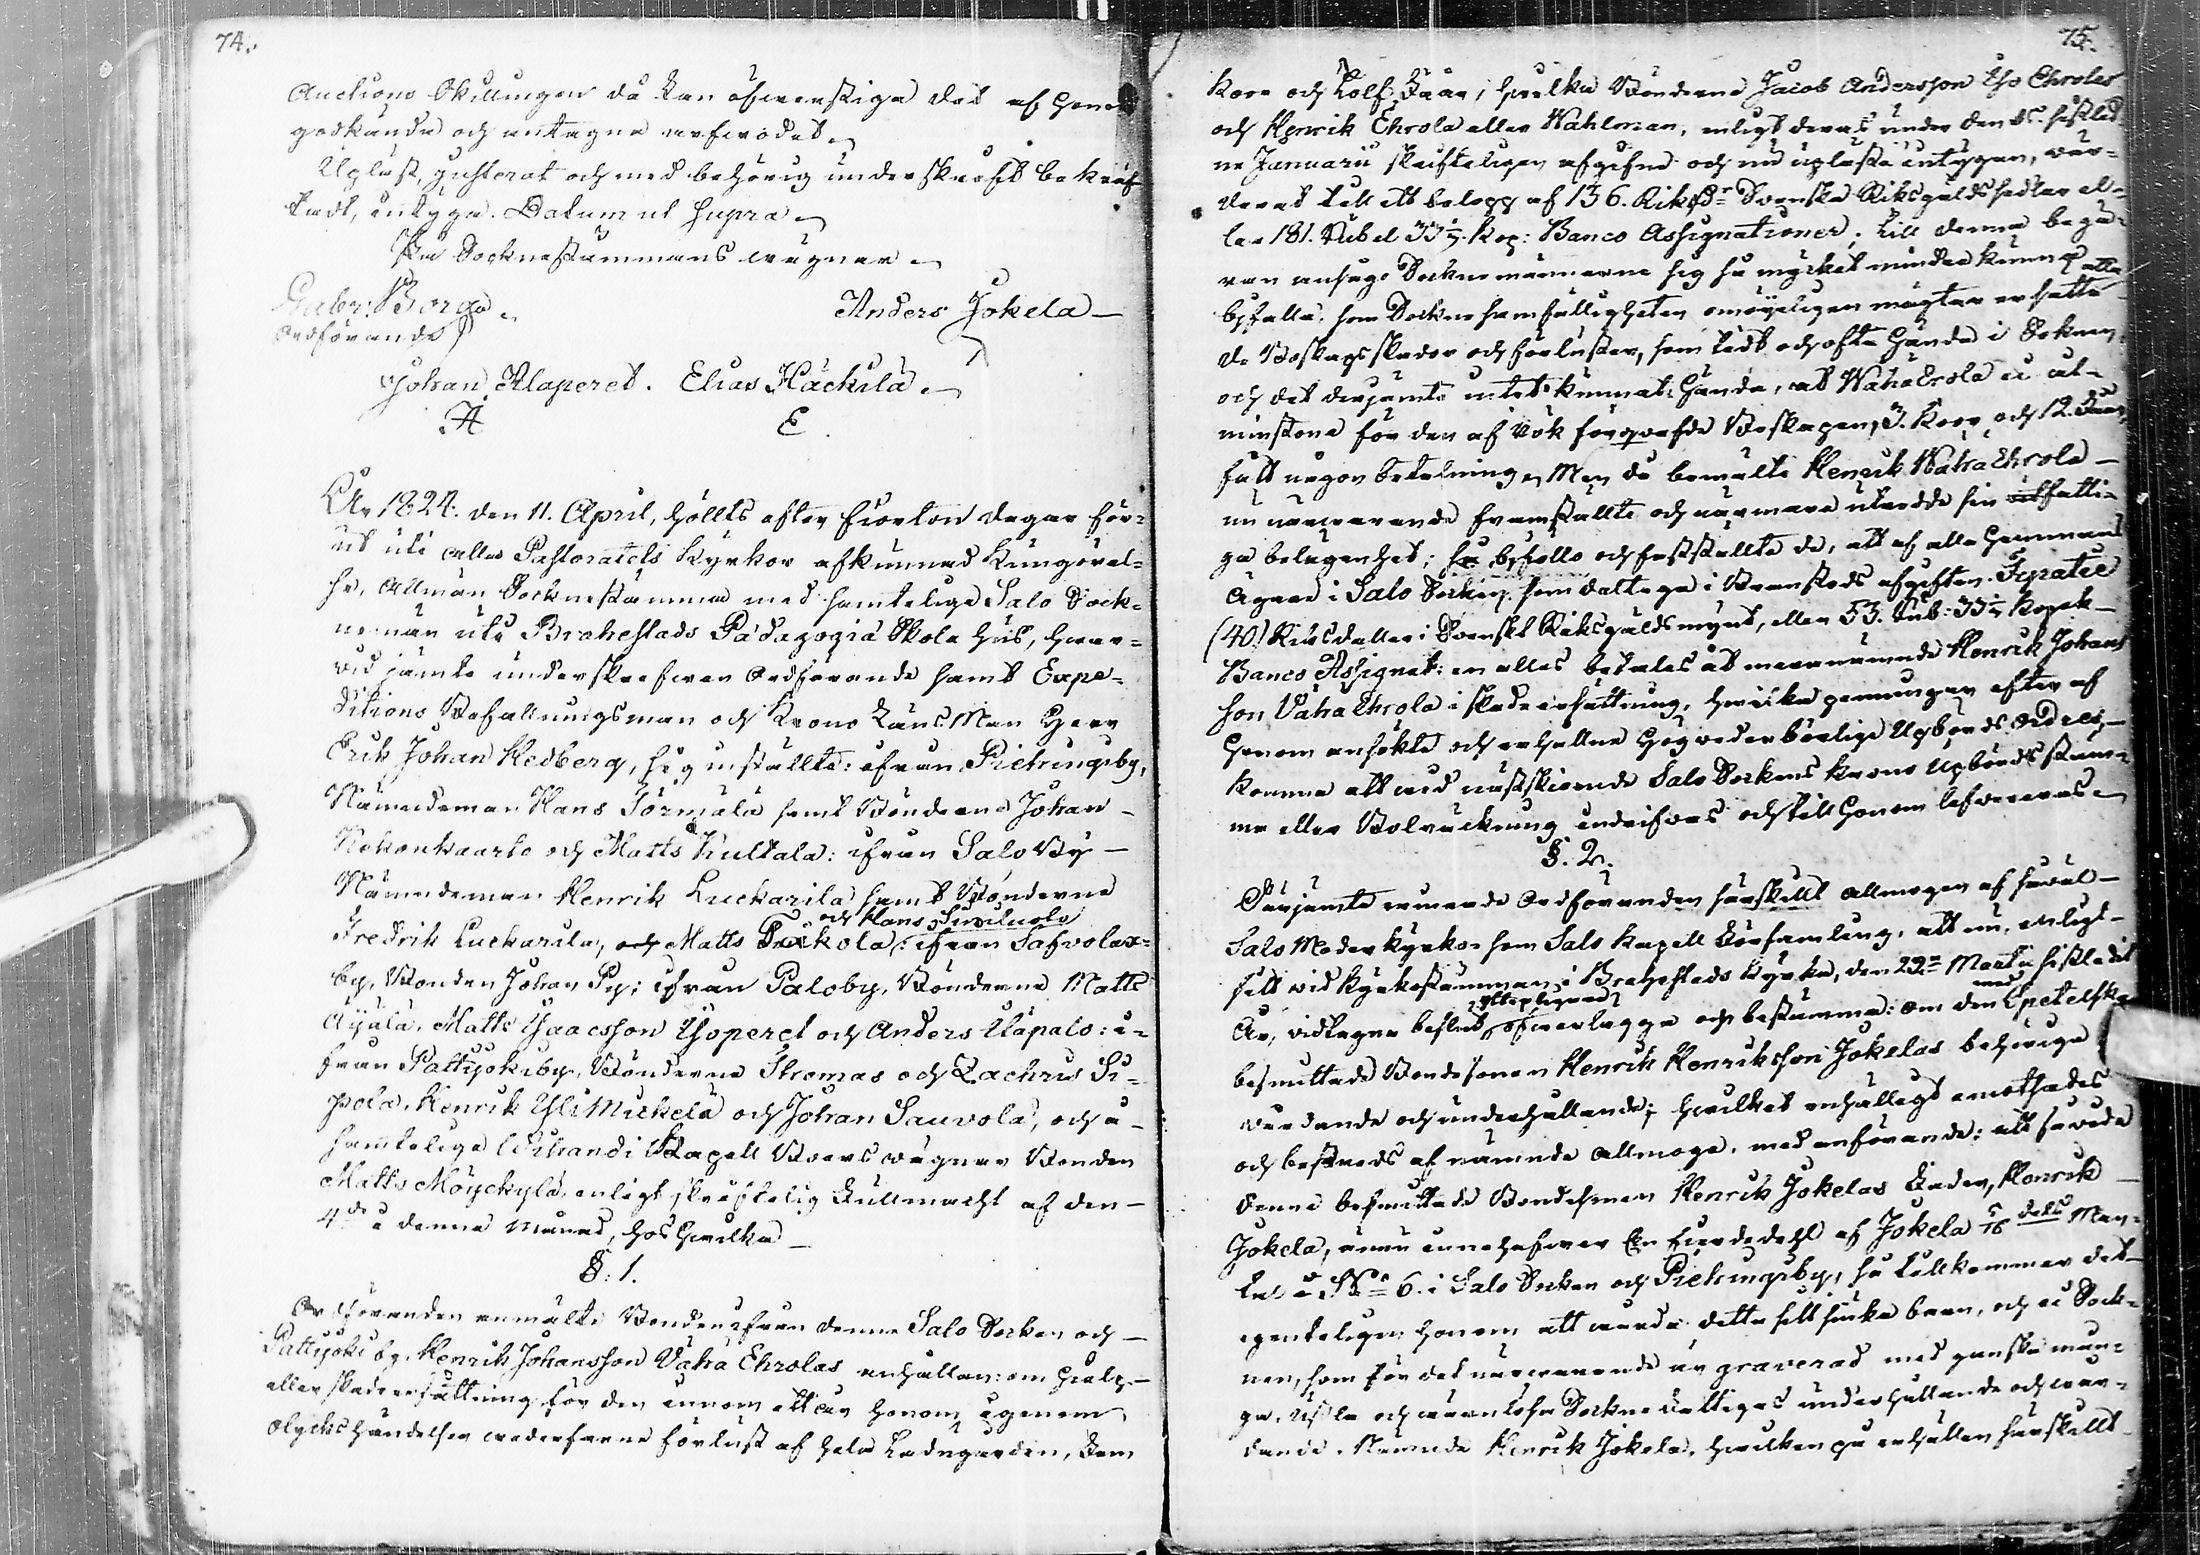 74.
Auctions Skillingen då kan öfverstiga det af honom
godkända och antagna arfvodet.
Upläst, justerat och med behörig underskrift bekräf-
tadt, intyga. Datum ut supra.
På Sockne stämmans wägnar.
Gabr: Borg. Anders Jokela
Ordförande
Johan Alaperet. Elias Häckilä.
A E
År 1824. den 11. April, hölts efter fiorton dagar för-
ut uti alla Pastoratets Kyrkor afkunnad Kungörel-
se, Allmän Sockne stämma med samtelige Salo Sock-
nemän uti Brahestads Pädagogiä Skole hus, hwar-
vid jämte underskrefven Ordförande samt Expe-
ditions Befallningsman och Krono Läns Man Herr
Erik Johan Hedberg, sig inställte: ifrån Piehingiby,
Nämndeman Hans Törmälä samt Bönderne Johan
Kokonkaarto och Matts Kultala: ifrån Salo By
Nämndeman Henrik Luckarila samt Bönderne
och Hans Siniluoto
Fredrik Luckarila, och Matts Tuckola: ifrån Safvolax-
by, Bonden Johan Py: ifrån Paloby, Bönderne Matts
Äijälä, Matts Isaacsson Ysoperet och Anders Ulapalo: i-
från Pattijokiby, Bönderne Thomas och Zachris Si-
pola, Henrik Yli Mickelä och Johan Sauvola, och å
samtelige Wihandi Kapell Boers wägnar Bonden
Matts Möyckylä, enligt skriftelig Fullmacht af den
4de i denna Månad, hos hwilka
§: 1.
Ordföranden anmälte Bonden ifrån denne Salo Socken och
Pattijoki by, Henrik Johansson Vähä Ehrolas anhållan: om hielp
eller skade ersättning för den innom ett år honom igenom
olycks händelser wederfarne förlust af hela Ladugården, Fem
75.
Koor och Tolf Fåår, hwilka Bönderne Jacob Andersson Iso Ehrola
och Henrik Ehrola eller Wahlman, enligt deras under den sistled-
ne Januarii skrifteligen afgifne och nu upläste intygan, vär-
derat till ett belopp af 136. Riksdr Svenska Riksgälds sedlar el-
ler 181. Rubel 33⅓ Kop: Banco Assignationer; till denna begä-
ran ansågo Sockne männerne sig så mycket mindre kunna
byfalla, som Sockne samfälligheten omöyeligen mägtar ersätta alla
de Boskaps skador och förluster, som tidt och ofta hända i Soknen
och det derjämte intet kunnat hända, at Waha Erola ei åt-
minstone för den af rök förqvafde Boskapen, 3. Koor och 12. Fåår,
fått någon betalning. Men då bemälte Henrik Waha Ehrola
nu närvarande framställte och närmare utredde sin utfatti-
ga belägenhet; så byföllo och fastställte de, att af alla Hemmans
Ägare i Salo Socken som daltaga i Brandstods afgiften Fyratie
(40) Riksdaller Svenskt Riksgälds mynt, eller 53. Rub: 33⅓ Kopek
Banco Assignat: en allas betales åt mernämnde Henrik Johans
son Vähä Ehrola i skade ersättning, hwilka penningar efter af
honom ansökte och erhållne Högvederbörlige Upbörds Ordres,
komma att vid nästskiende Salo Sockens Krono Upbörds stäm-
ma eller Bolräckning indrifvas och till honom lefvereras.
§. 2.
Därjämte ernrade Ordföranden särskillt allmogen af såväl
Salo Moder Kyrko som Salo Kapell Församling, att nu, enligt
sitt vid Kyrkostämman i Brahestads Kyrka, den 29de Martii sistledit
År, vidtagne beslut öfverlägga och bestämma: om den med Spetelska
besmittade Bonde sonen Henrik Henriksson Jokelas behörige
wårdande och underhållande; hwilket enhälligt emottades
och bestreds af nämnde allmoge, med anförande: att så wida
denne besmittade Bondesonen Henrik Jokelas Fader, Henrik
Jokela, ännu innehafver En fierdedehl af Jokela 5/16 dels Man-
tal å No 6. i Salo Socken och Piehingiby, så tillkommer det
egenteligen honom att wårda detta sitt siuka barn, och ei Sock-
nen, som för det närvarande är graverad med ganska mån-
ga, usla och wärnlösa Sockne fattiges underhållande och wår-
dande. Nämnde Henrik Jokela, hwilken på erhållen särskillt